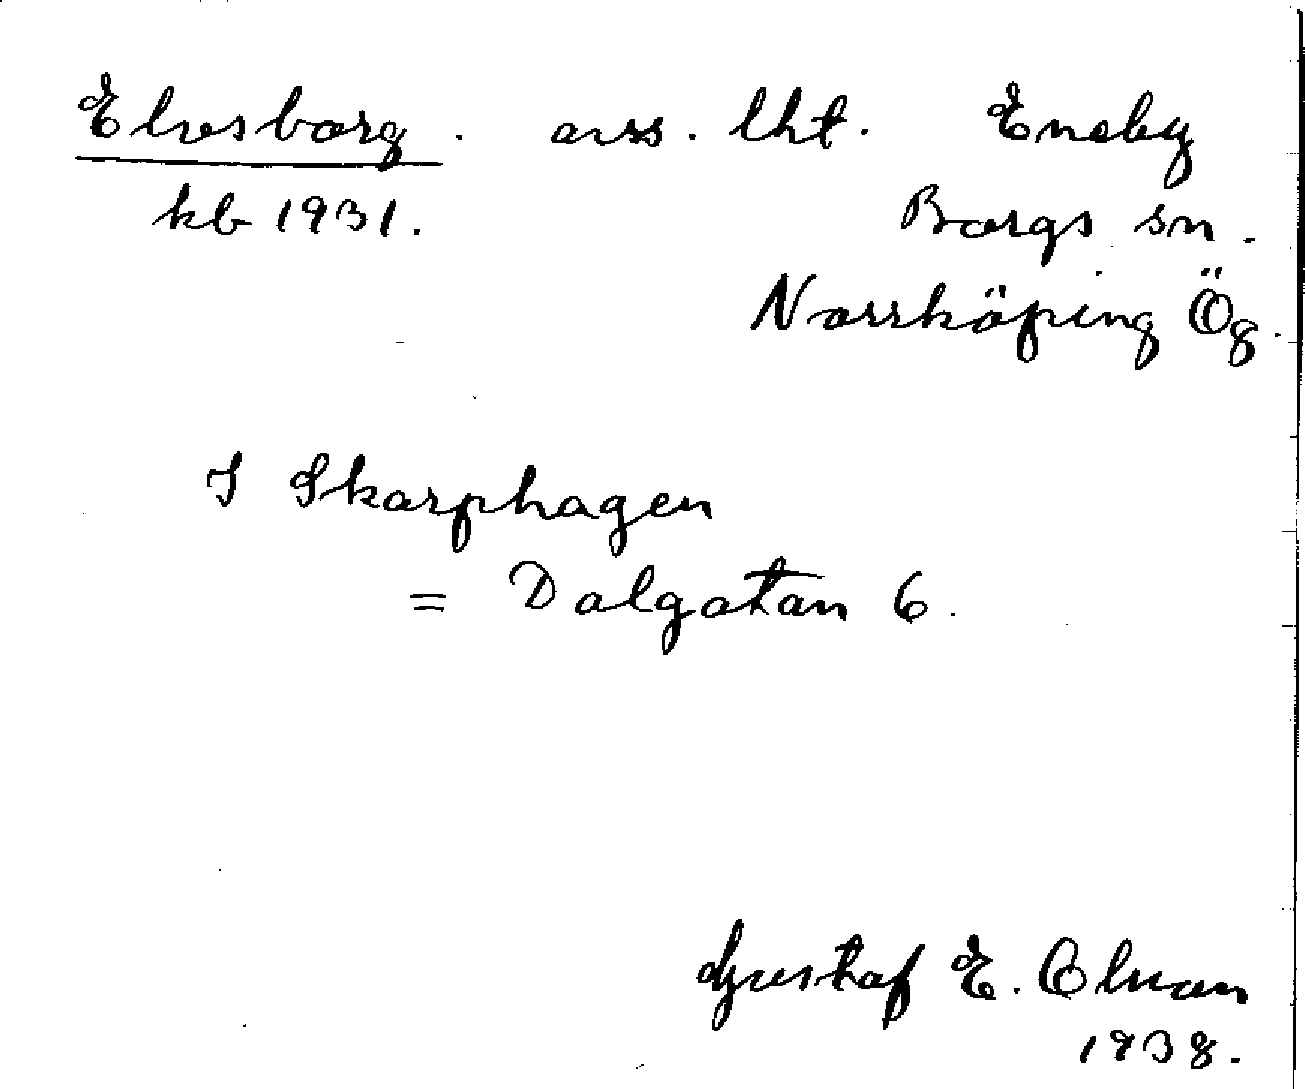 Elvesborg. avs. lht. Eneby
kb 1931. Borgs sn.
Norrköping Ög.
I Skarphagen
= Dalgatan 6.
Gustaf E. Olsson
1938.